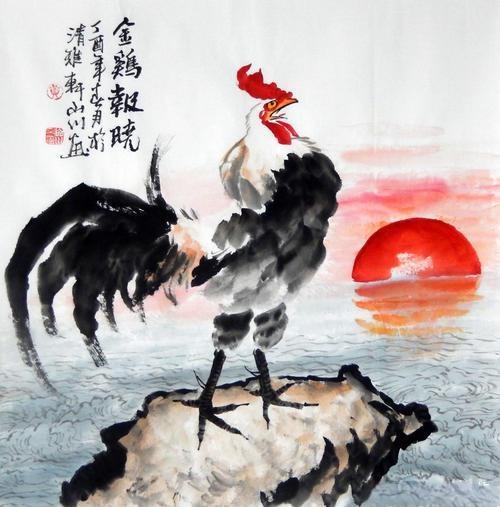 金鷄報曉
丁酉年春月於
清雅軒山川画